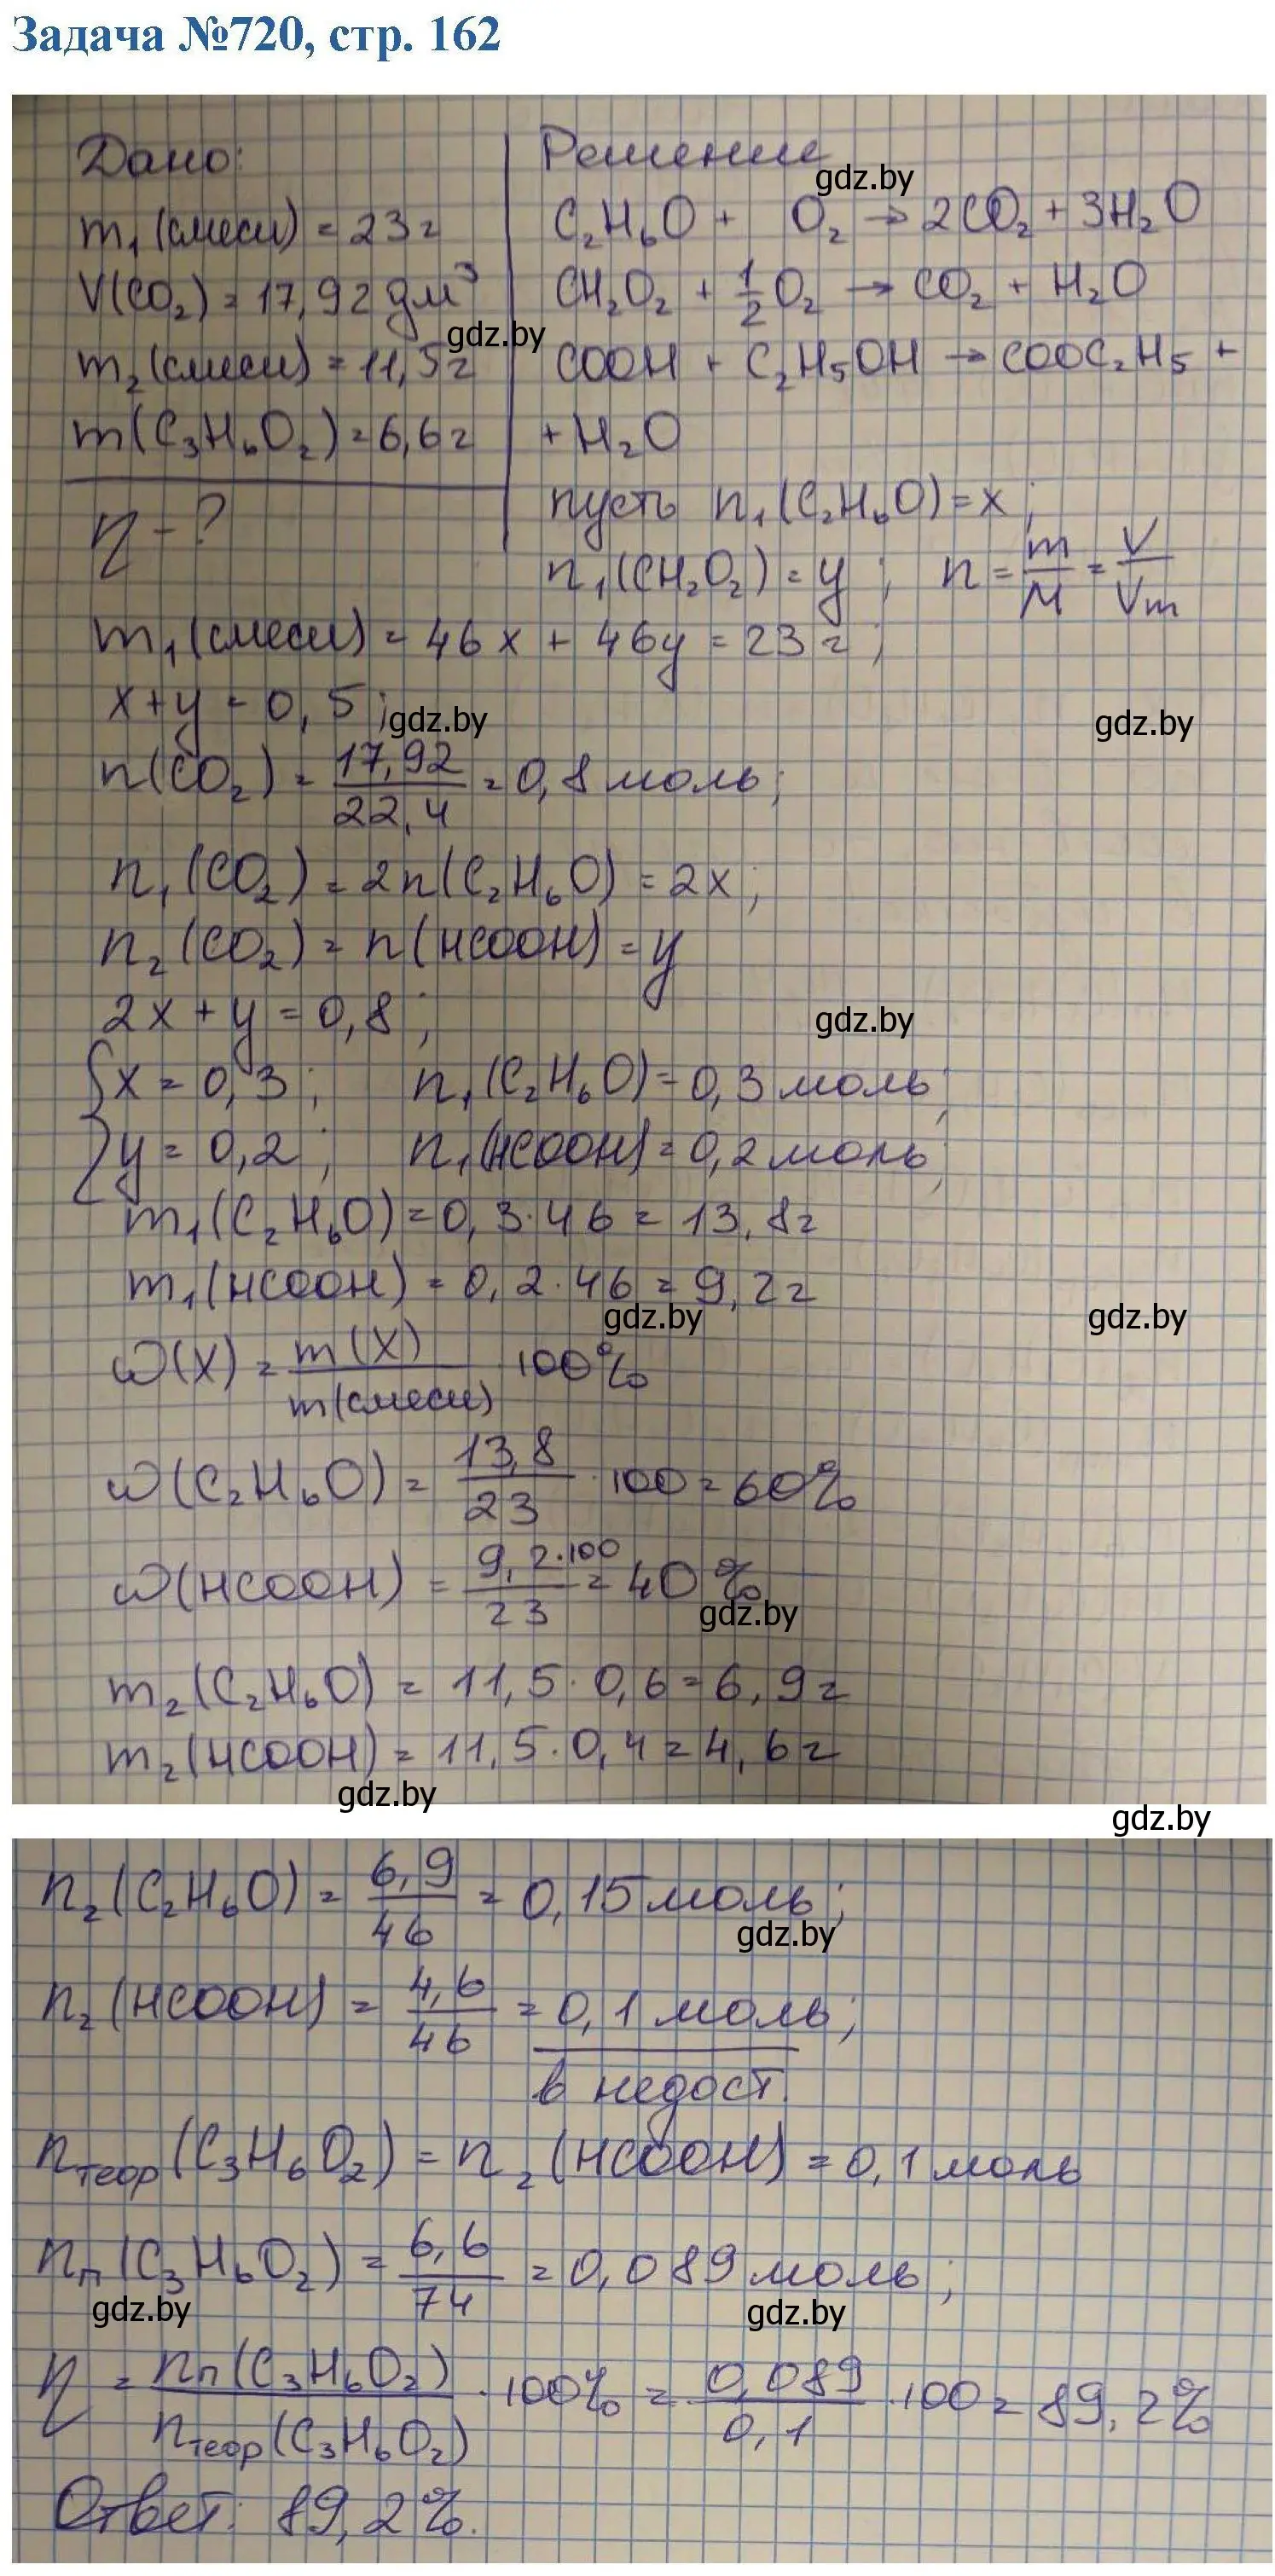 Задача №720, стр. 162
Дано:
m₁(смеси) = 23г
V(CO₂) = 17,92 дм³
m₂(смеси) = 11,5г
m(C₃H₆O₂) = 6,6г
η - ?
Решение
gdz.by
C₂H₆O + O₂ → 2CO₂ + 3H₂O
CH₂O₂ + 1/2 O₂ → CO₂ + H₂O
gdz.by
COOH + C₂H₅OH → COOC₂H₅ +
+ H₂O
пусть n₁(C₂H₆O) = x;
n₁(CH₂O₂) = y; n = m/M = V/Vm
m₁(смеси) = 46x + 46y = 23г;
x + y = 0,5;
gdz.by
gdz.by
n(CO₂) = 17,92/22,4 = 0,8 моль;
n₁(CO₂) = 2n(C₂H₆O) = 2x;
n₂(CO₂) = n(HCOOH) = y
2x + y = 0,8;
gdz.by
{x = 0,3; n₁(C₂H₆O) = 0,3 моль;
{y = 0,2; n₁(HCOOH) = 0,2 моль;
m₁(C₂H₆O) = 0,3·46 = 13,8г
m₁(HCOOH) = 0,2·46 = 9,2г
gdz.by
gdz.by
ω(X) = m(X)/m(смеси) 100%
ω(C₂H₆O) = 13,8/23 · 100 = 60%
ω(HCOOH) = 9,2·100/23 = 40%
gdz.by
m₂(C₂H₆O) = 11,5·0,6 = 6,9г
m₂(HCOOH) = 11,5·0,4 = 4,6г
gdz.by
gdz.by
n₂(C₂H₆O) = 6,9/46 = 0,15 моль;
gdz.by
n₂(HCOOH) = 4,6/46 = 0,1 моль;
в недост.
nтеор(C₃H₆O₂) = n₂(HCOOH) = 0,1 моль
nп(C₃H₆O₂) = 6,6/74 = 0,089 моль;
gdz.by
gdz.by
η = nп(C₃H₆O₂)/nтеор(C₃H₆O₂) · 100% = 0,089/0,1 · 100 = 89,2%
Ответ: 89,2%.